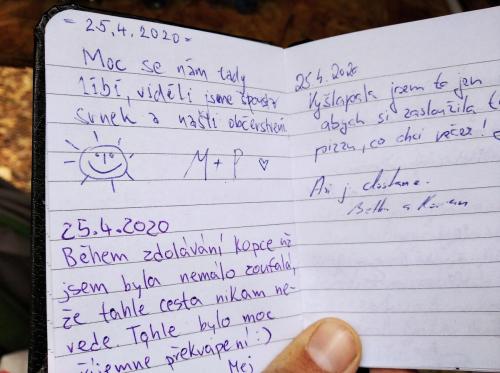 = 25.4.2020 =
Moc se nám tady
líbí, viděli jsme spoustu
srnek a našli občerstvení
M + P ♡
25.4.2020
Během zdolávání kopce už
jsem byla nemálo zoufalá,
že tahle cesta nikam ne-
vede. Tohle bylo moc
příjemne překvapení! :)
Mej
25.4.2020
Vyšlapala jsem to jen
abych si zasloužila
pizzu, co chci večer!
Asi j dostane.
a